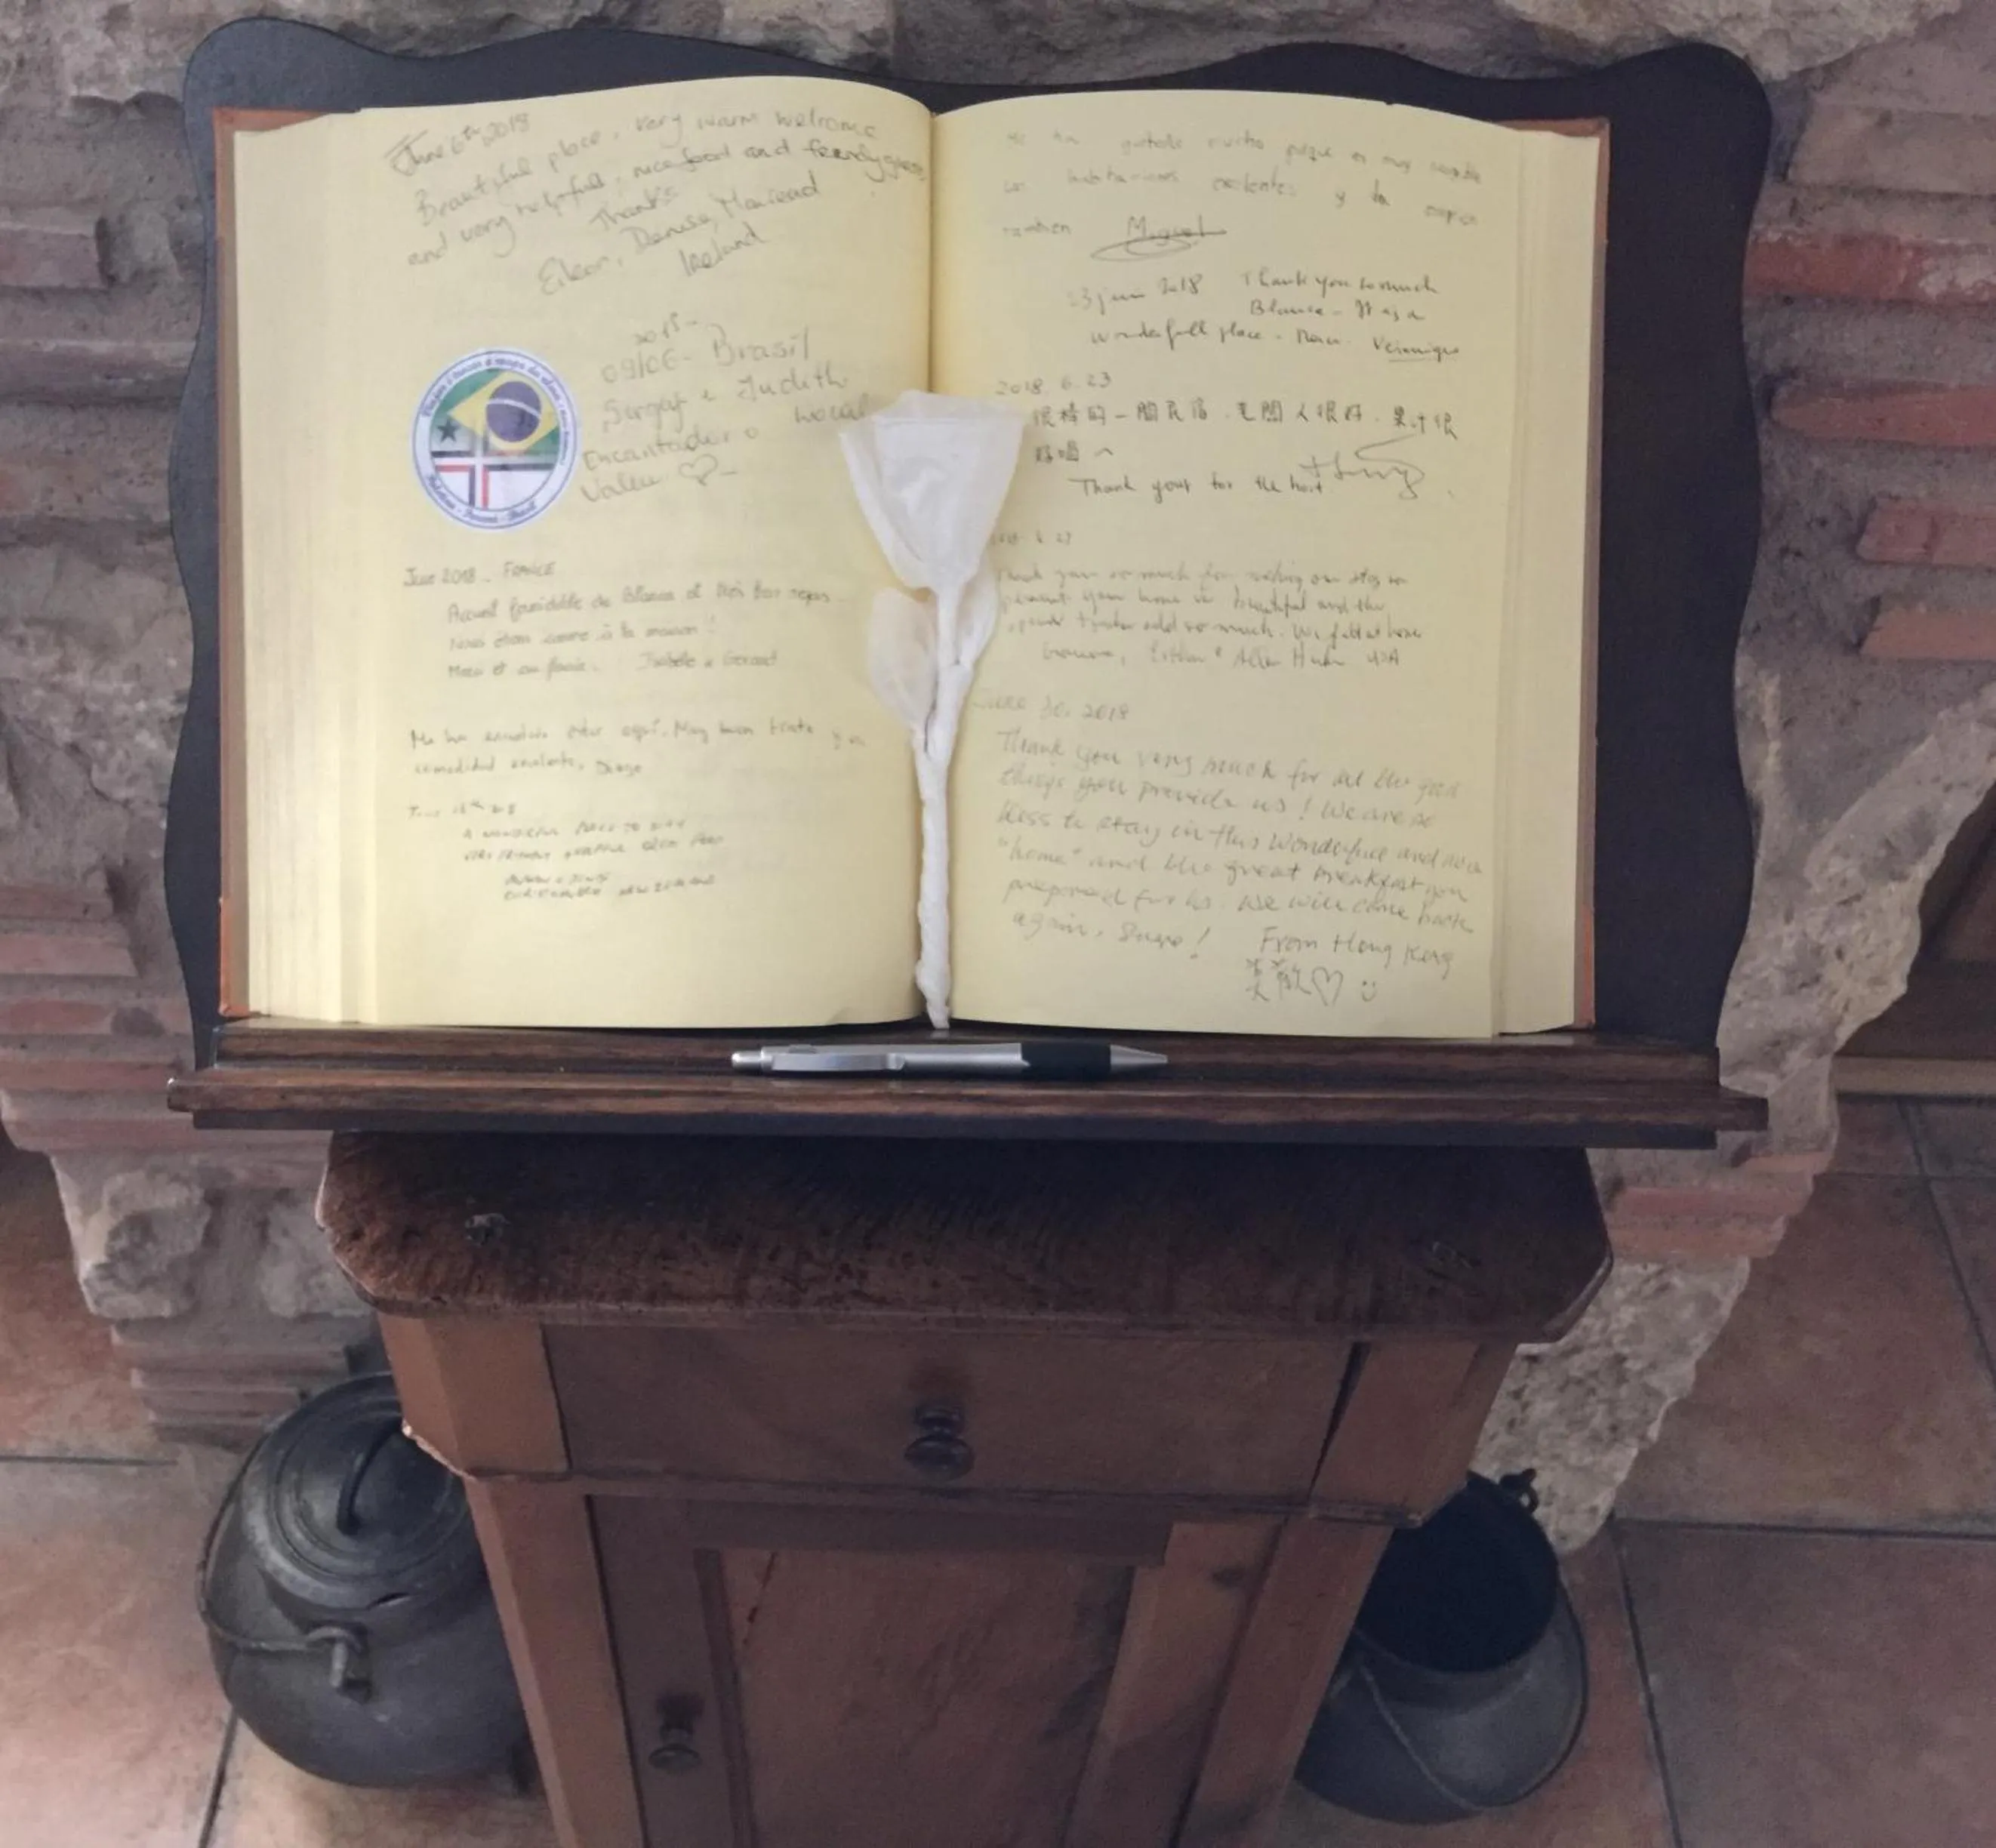 June 6th 2018
Beautiful place, very warm welcome
and very helpfull, nice food and
Thanks
Denise, Mairead
Ireland
2018-
09/06- Brasil
e Judith
Encantador o local
Valeu ♡-
Brasil
June 2018 - FRANCE
Accueil formidable de Blanca et très bon repas
Nous étions comme à la maison !
Merci et au Isabelle & Gérard
Me ha encantado estar aquí. Muy buen trato y
comodidad excelente,
A WONDERFUL PLACE TO STAY
VERY FRIENDLY GOOD FOOD
NEW ZEALAND
Me ha gustado mucho porque es muy
las habitaciones excelentes y la
también Miguel
23 juin 2018 Thank you so much
Blanca - It is a
wonderfull place - Véronique
2018. 6. 23
很棒的一間民宿.老闆人很好.果汁很
好喝~
Thank your for the host
Thank you so much for making our stay so
pleasant. your home is beautiful and the
add so much. We felt at home
Esther & USA
June 30, 2018
Thank you very much for all the good
things you provide us! We are so
bless to stay in this wonderful and
"home" and the great breakfast you
prepared for us. We will come back
again, Sure! From Hong Kong
♡ ☺